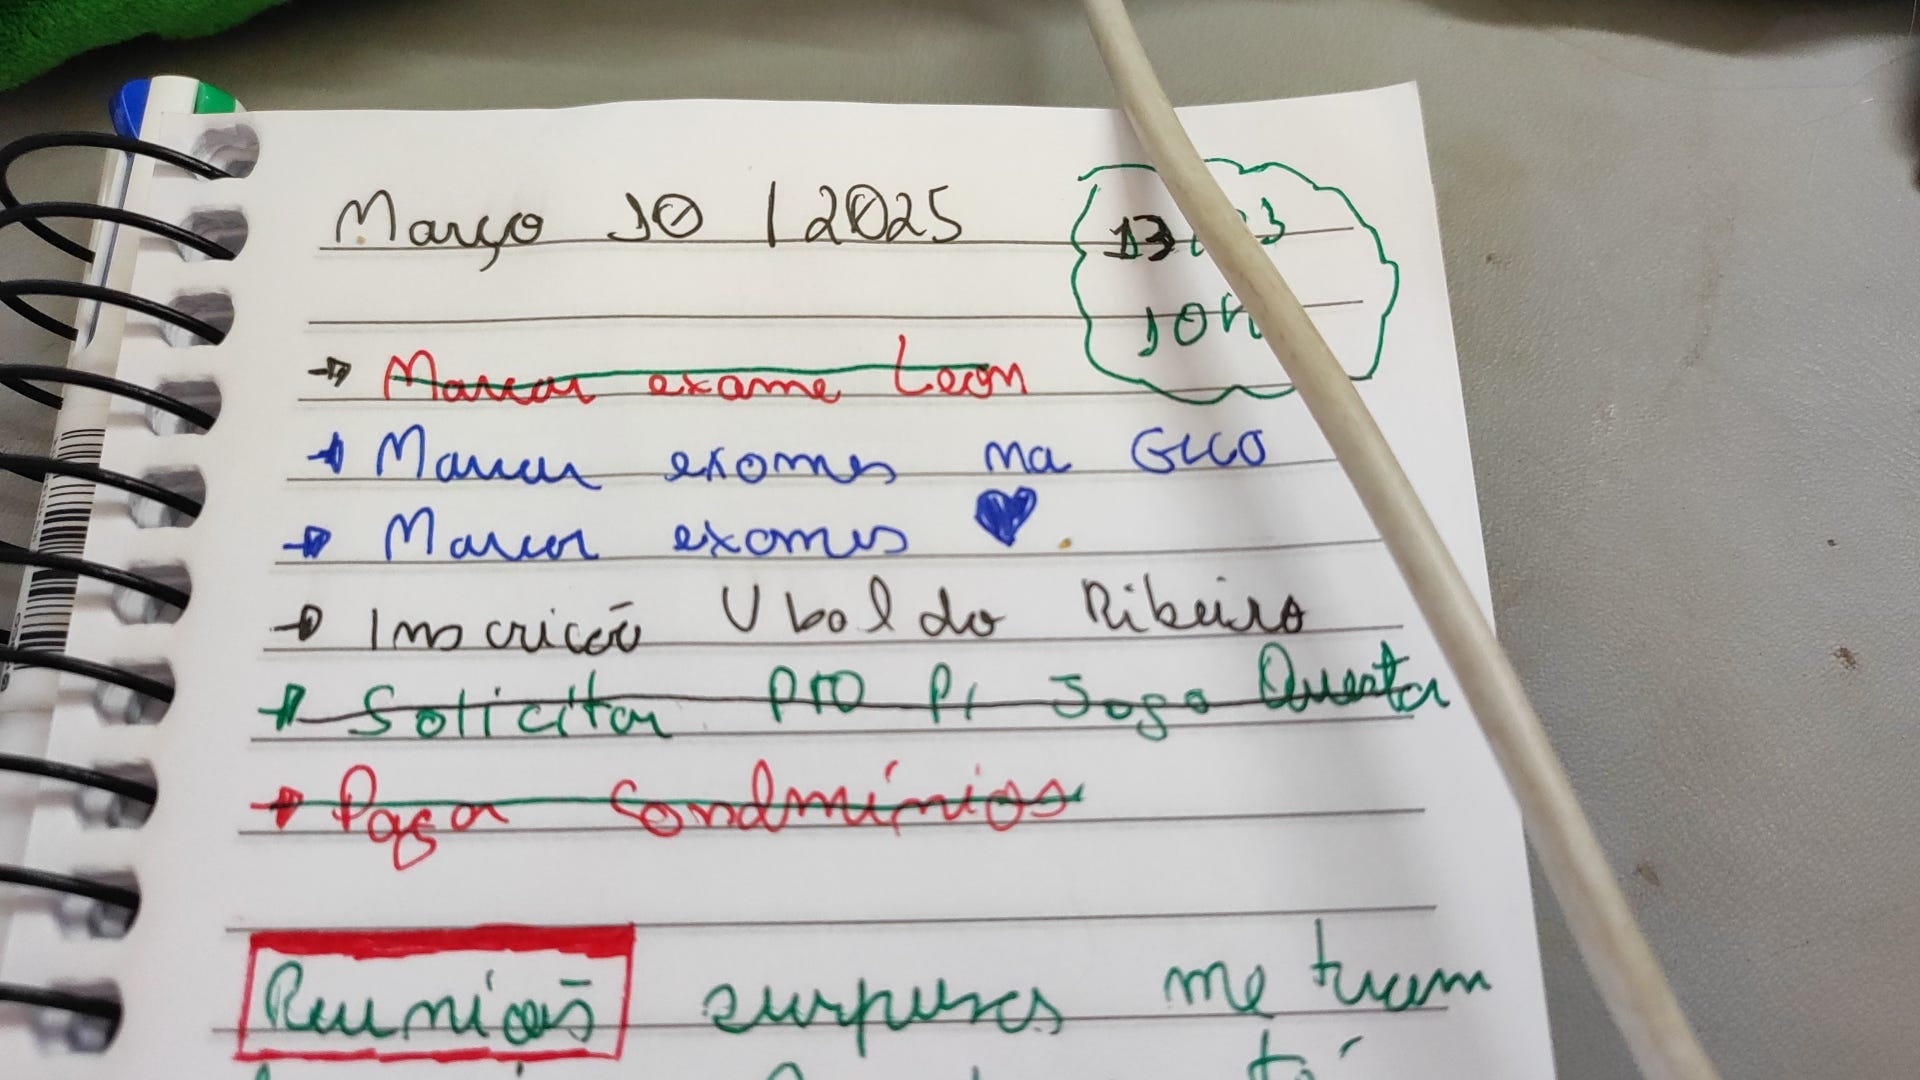 Março 10 | 2025
13/03
10h
Marcar exame Leon
Marcar exames na GECO
Marcar exames ♥.
Inscrição Ubaldo Ribeiro
Solicitar PTO P/ Jogo Quarta
Pagar Condmínios
Reuniões surpresas me